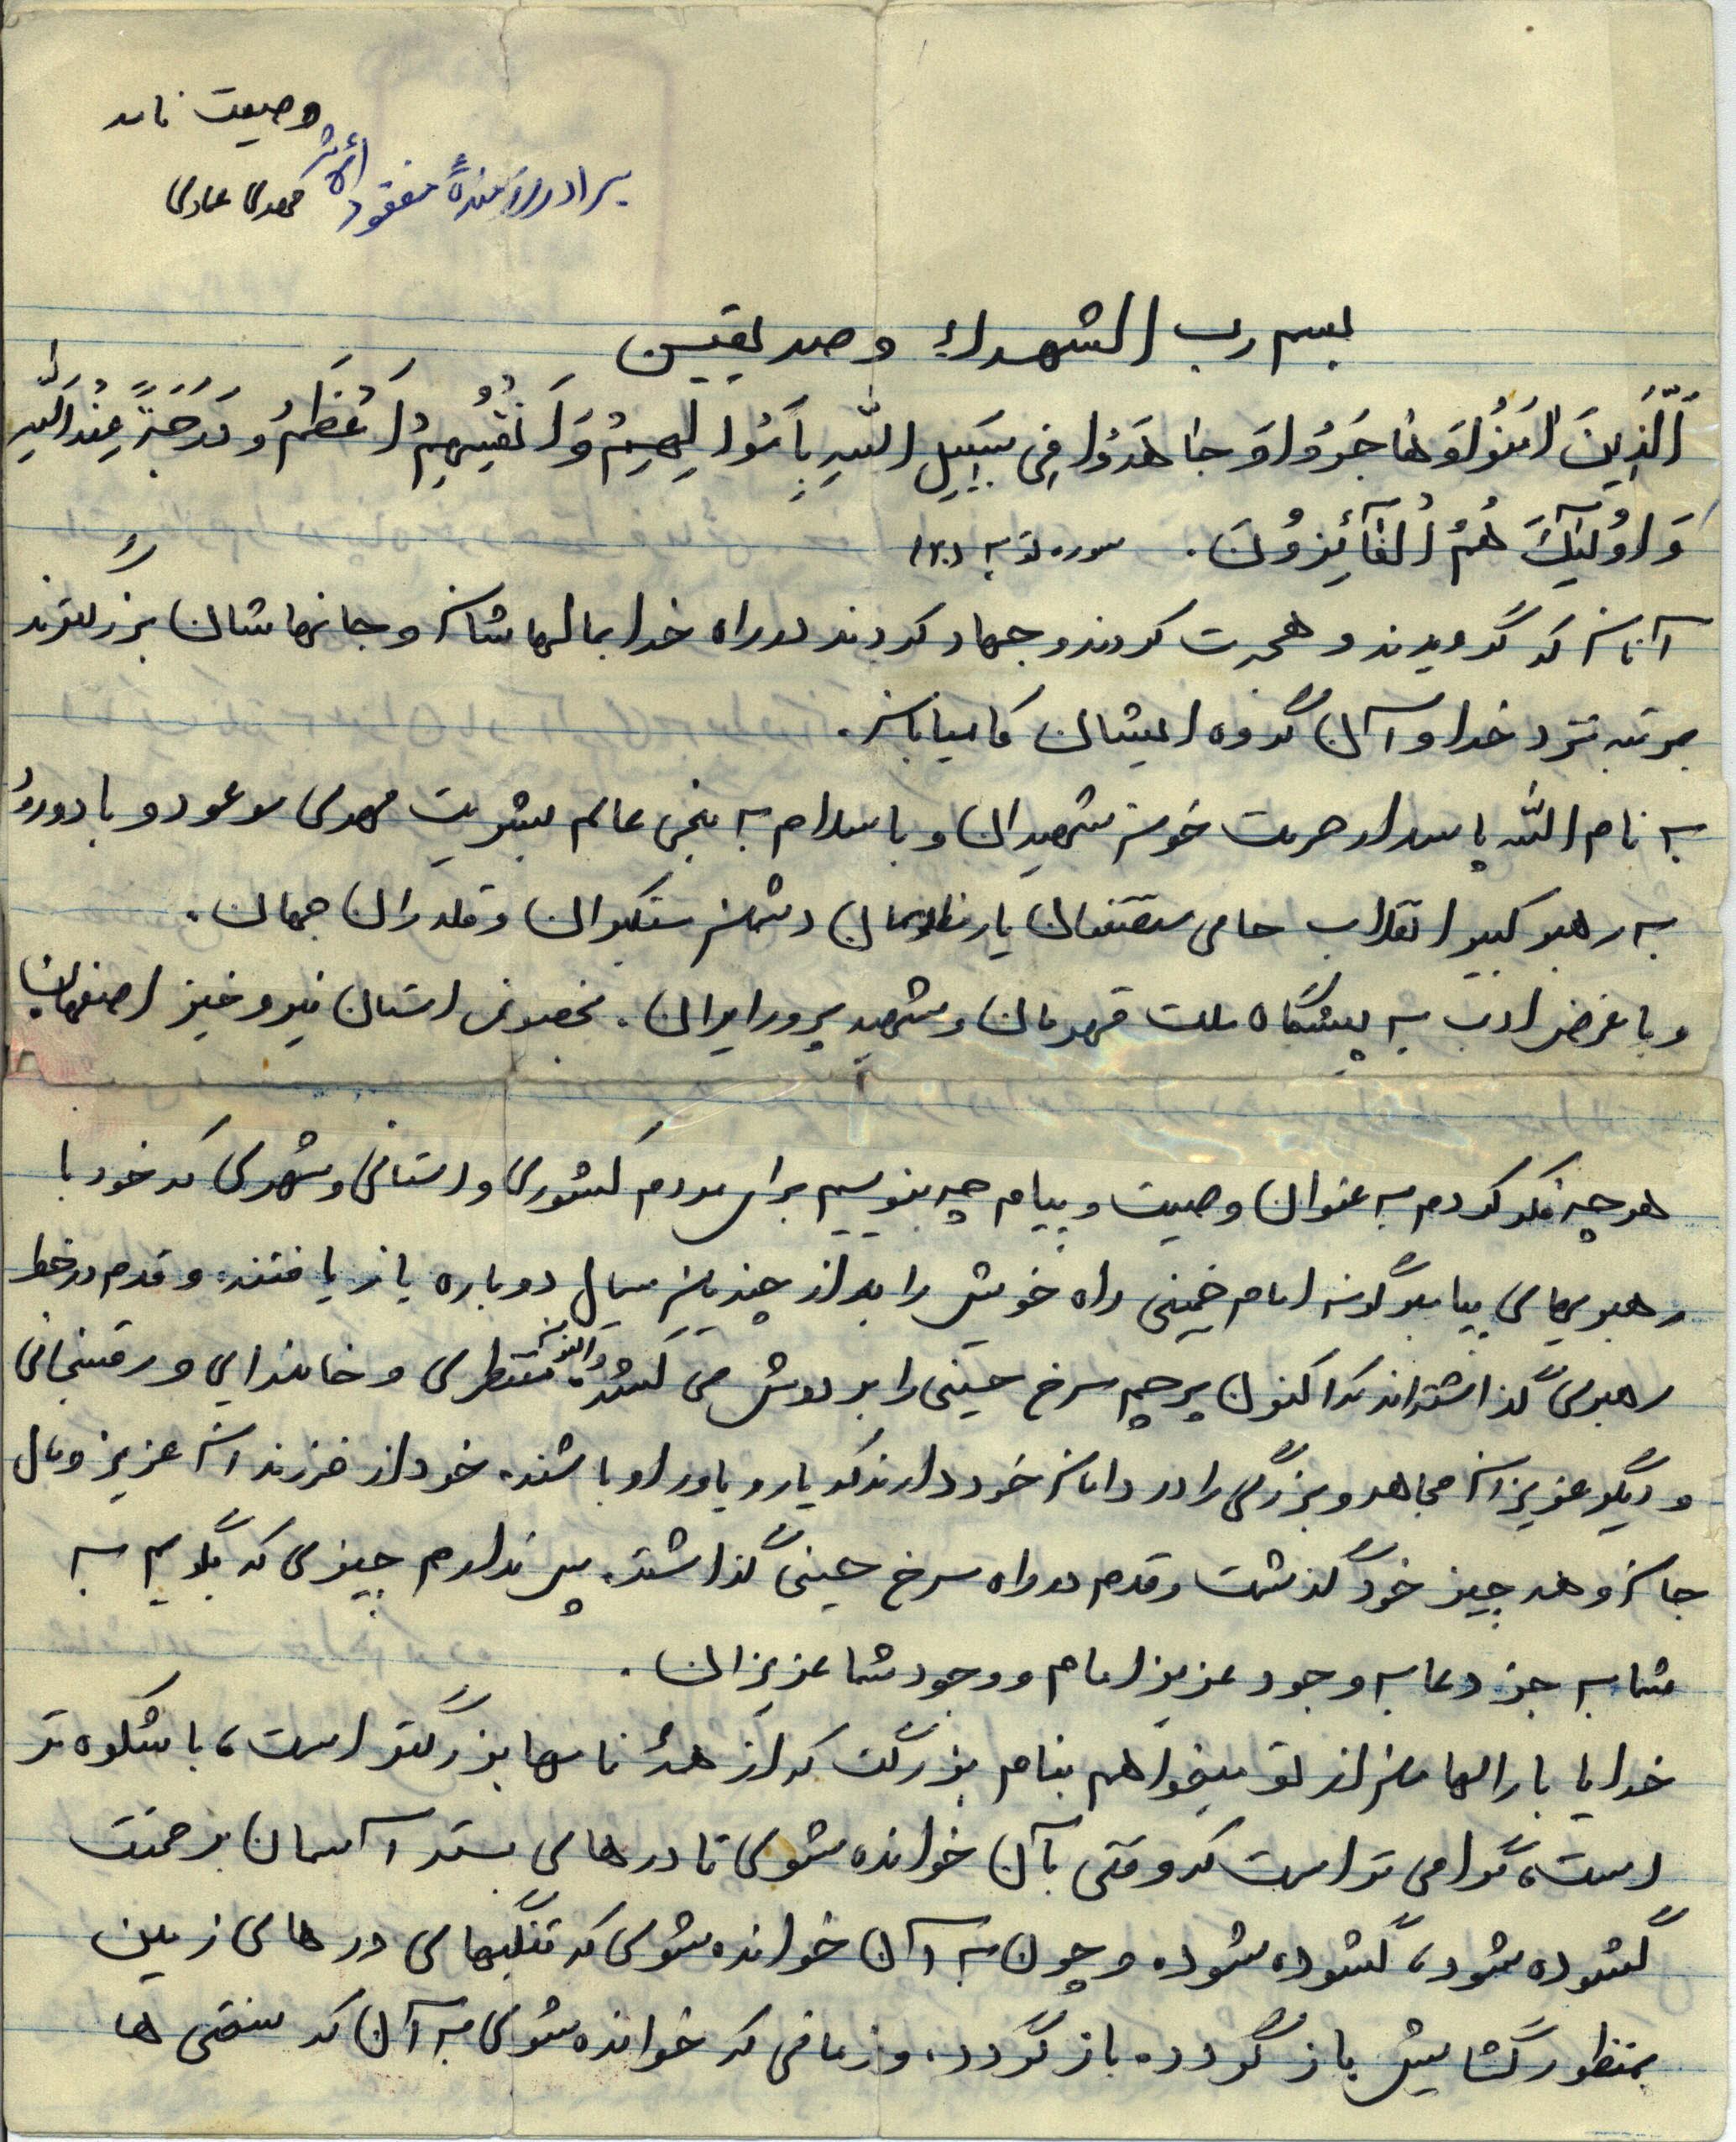 وصیت نامه
برادر رزمنده مفقود الأثر مهدی عمادی
بسم رب الشهداء و صدیقین
اَلَّذینَ امَنُوا وَ هاجَرُوا وَ جاهَدُوا فِی سَبیلِ اللّهِ بِاَموالِهِمْ وَ اَنْفُسِهِمْ اَعْظَمُ دَرَجَةً عِنْدَ اللّهِ
وَ اوُلئِکَ هُمُ الْفآئِزُونَ. سوره توبه (۲۰)
آنانکه گرویدند و هجرت کردند و جهاد کردند در راه خدا بمالهاشان و جانهاشان بزرگترند
مرتبه نزد خدا و آن گروه ایشان کامیابان.
به نام الله پاسدار حرمت خون شهیدان و با سلام به منجی عالم بشریت مهدی موعود و با درود
به رهبر کبیر انقلاب حامی مستضعفان یار مظلومان دشمن ستمگران و قلدران جهان.
و با عرض ادب به پیشگاه ملت قهرمان و شهید پرور ایران. بخصوص استان نیرو خیز اصفهان
هر چه فکر کردم به عنوان وصیت و پیام چه بنویسم برای مردم کشوری و استانی و شهری که خود با
رهبریهای پیامبرگونه امام خمینی راه خویش را بعد از چندین سال دوباره باز یافتند. و قدم در خط
رهبری گذاشته‌اند که اکنون پرچم سرخ حسینی را بر دوش می کشد، و منتظری و خامنه‌ای و رفسنجانی
و دیگر عزیزان مجاهد و بزرگی را در دامان خود دارند که یار و یاور او باشند. خود از فرزندان عزیز و مال
جان و همه چیز خود گذشت و قدم در راه سرخ حسینی گذاشته. پس ندارم چیزی که بگویم به
شما به جز دعا به وجود عزیز امام و وجود شما عزیزان.
خدایا بارالها من از تو میخواهم بنام بزرگت که از همهٔ نامها بزرگتر است، با شکوه تر
است، گرامی تر است که وقتی بآن خوانده شوی تا درهای بسته آسمان برحمتت
گشوده شود، گشوده شود. و چون به آن خوانده شوی که تنگیهای درهای زمین
بمنظور گشایش باز گردد. باز گردد. و زمانی که خوانده شوی به آن که سختی ها